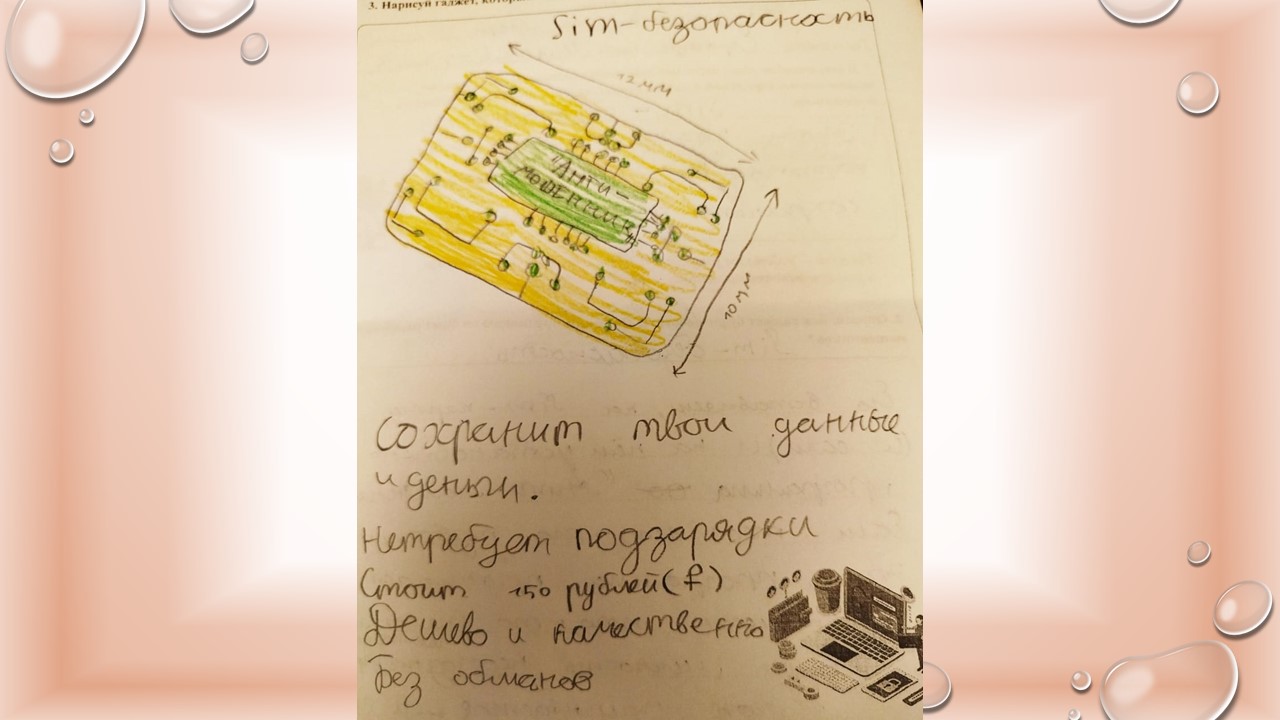 3. Нарисуй гаджет,
Sim-безопасность
12 мм
"Анти-
мошенник"
10 мм
Сохранит твои данные
и деньги.
Нетребует подзарядки
Стоит 150 рублей(₽)
Дешево и качественно
Без обманов